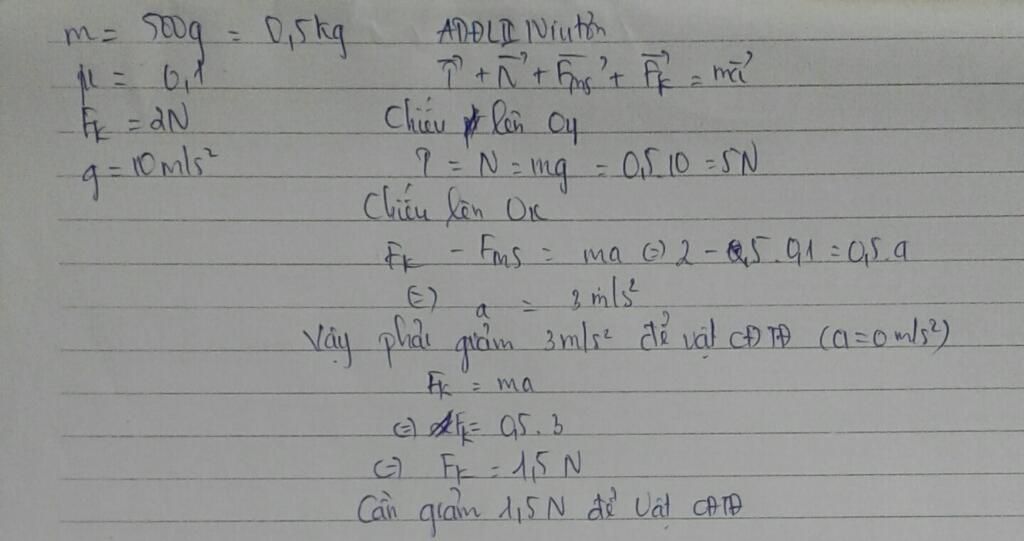 m = 500g = 0,5kg ADĐLII Niutơn
μ = 0,1 P⃗ + N⃗ + F⃗ms + F⃗k = ma⃗
Fk = 2N Chiếu lên Oy
g = 10m/s² P = N = mg = 0,5.10 = 5N
Chiếu lên Ox
Fk - Fms = ma ⇔ 2 - 5.0,1 = 0,5.a
⇔ a = 3m/s²
Vậy phải giảm 3m/s² để vật CĐTĐ (a=0m/s²)
Fk = ma
⇔ Fk = 0,5.3
⇔ Fk = 1,5 N
Cần giảm 1,5N để vật CĐTĐ